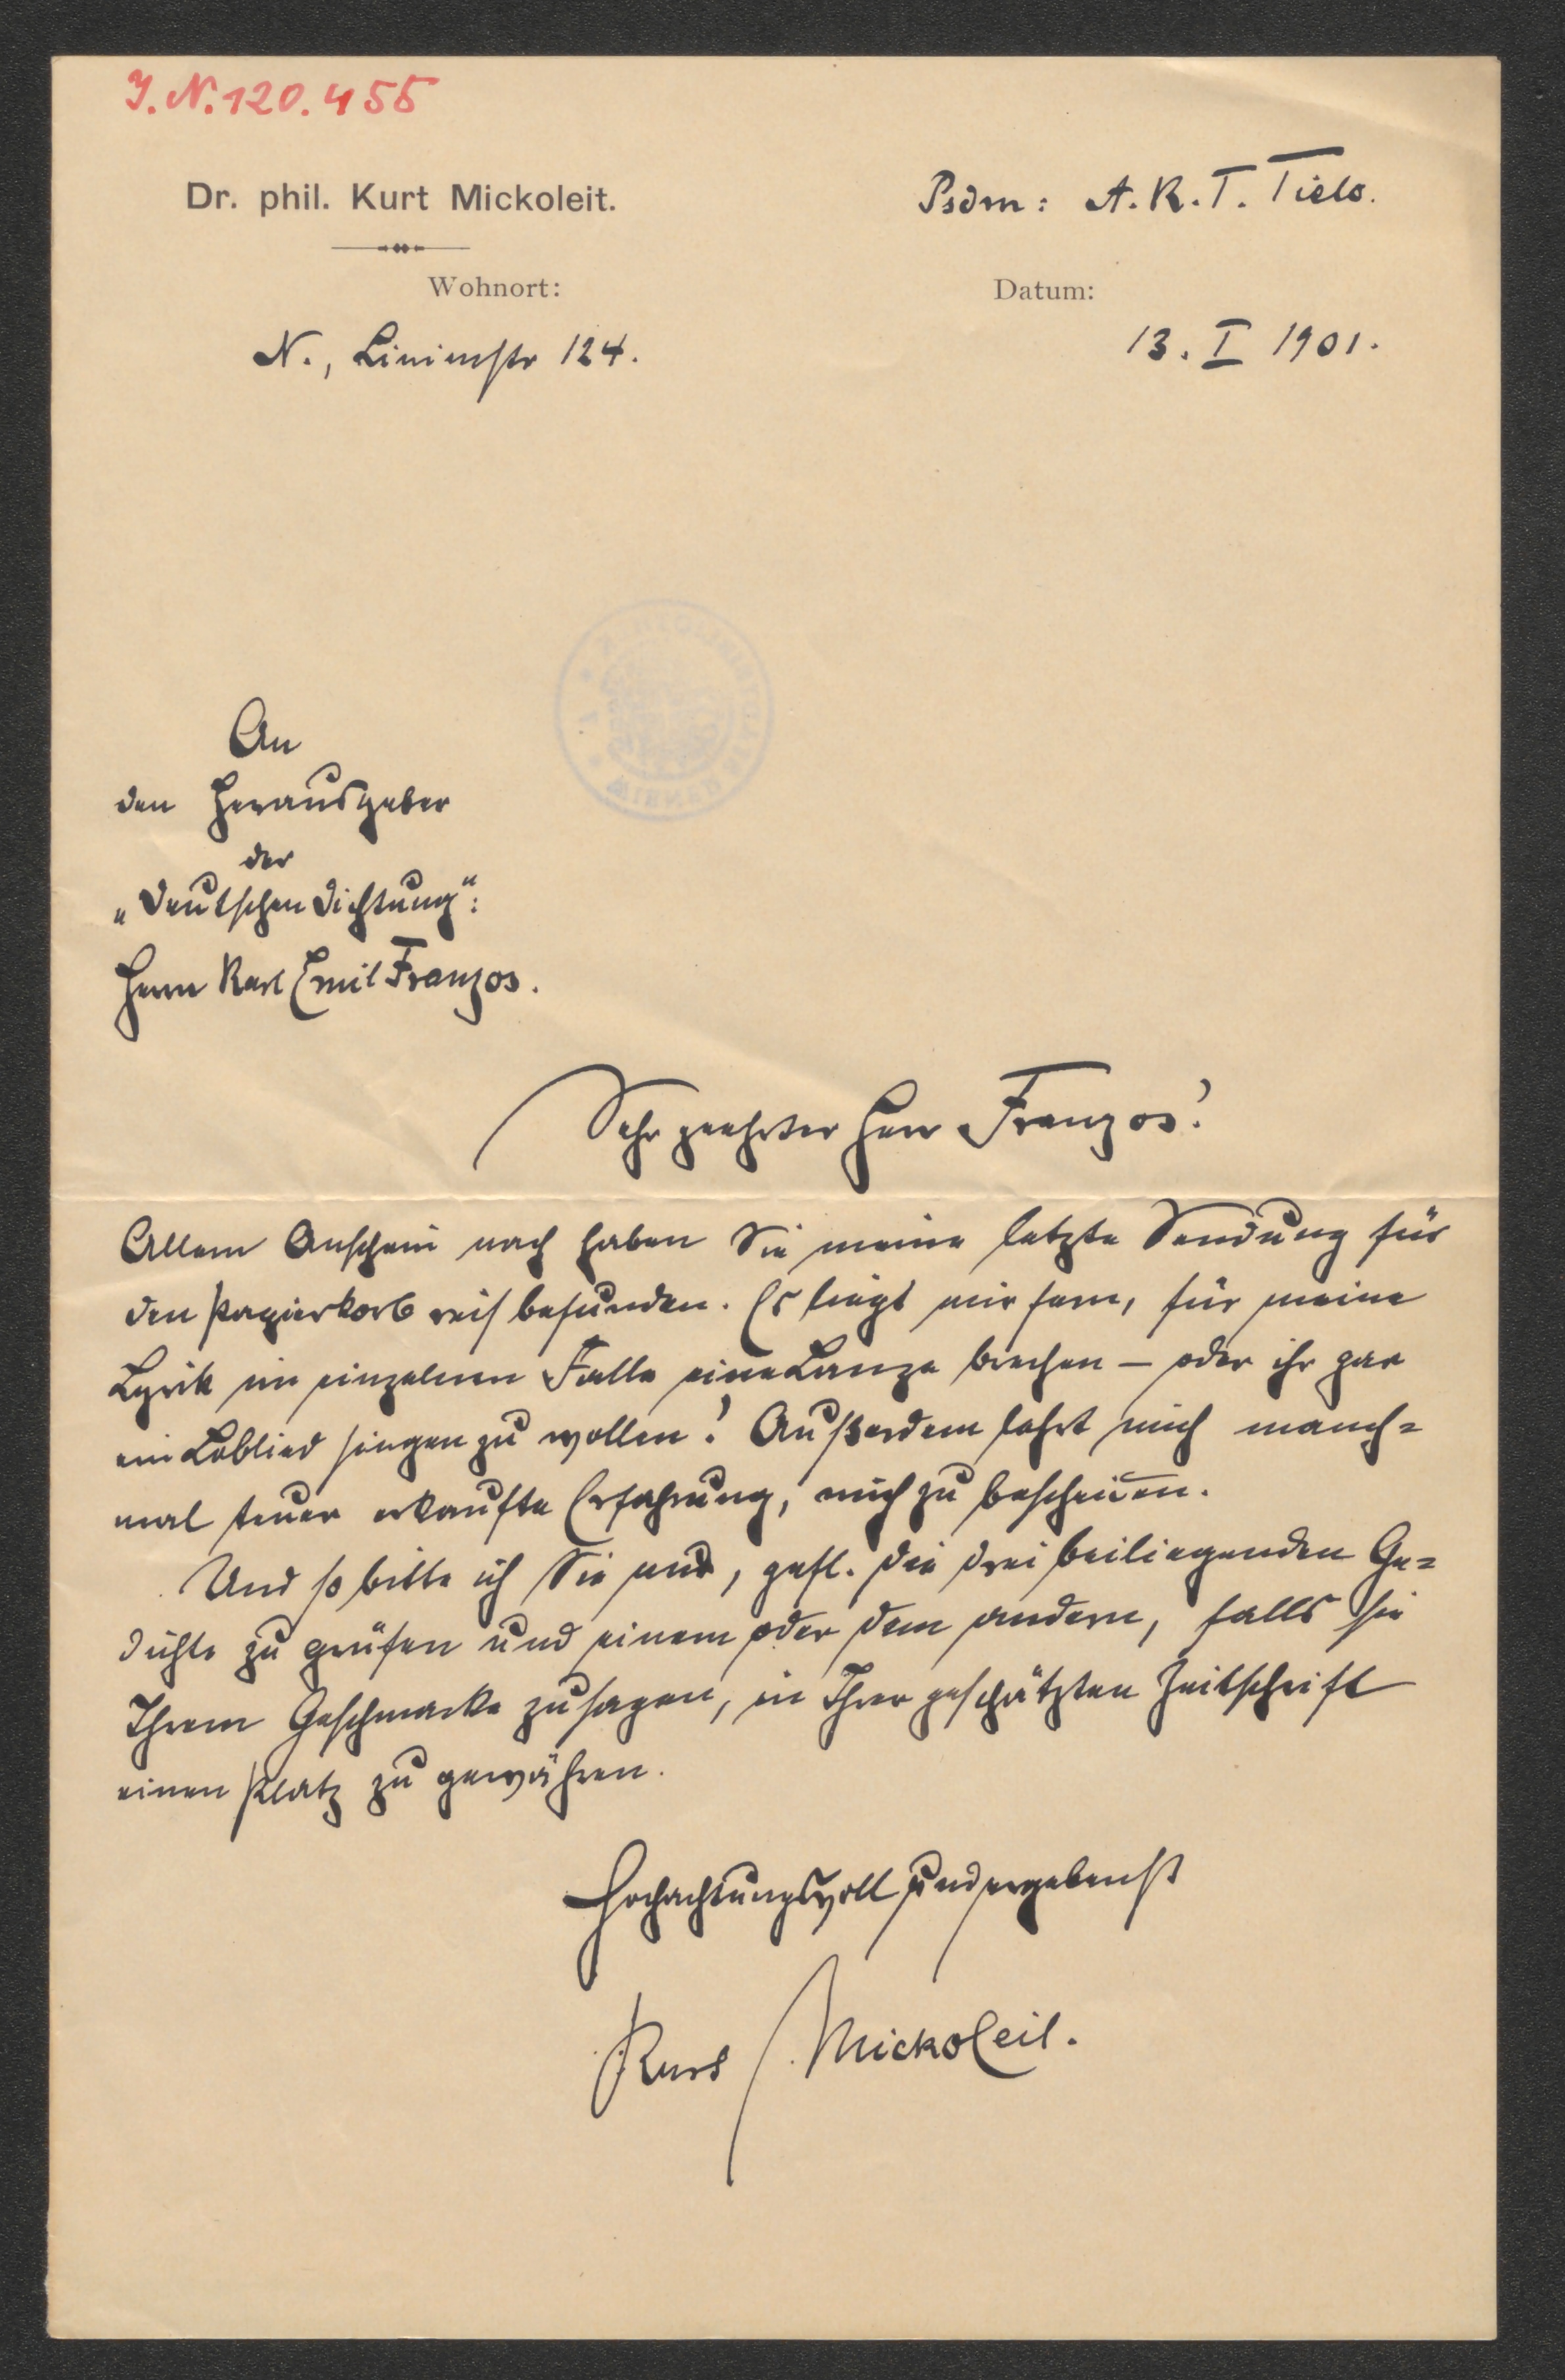 J.N. 120.455
Dr. phil. Kurt Mickoleit.
Psdm: A. K. T. Tielo.
Wohnort:
Datum:
N., Linienstr 124.
13. I 1901.
An
den Herausgeber
der
„Deutschen Dichtung":
Herrn Karl Emil Franzos.
Sehr geehrter Herr Franzos!
Allem Anschein nach haben Sie meine letzte Sendung für
den Papierkorb reif befunden. Es liegt mir fern, für meine
Lyrik im einzelnen Falle eine Lanze brechen – oder ihr gar
ein Loblied singen zu wollen! Außerdem lehrt mich manch=
mal teuer erkaufte Erfahrung, mich zu bescheiden.
Und so bitte ich Sie nur, gefl. die drei beiliegenden Ge=
dichte zu prüfen und einem oder dem andern, falls sie
Ihrem Geschmacke zusagen, in Ihrer geschätzten Zeitschrift
einen Platz zu gewähren.
Hochachtungsvoll und ergebenst
Kurt Mickoleit.